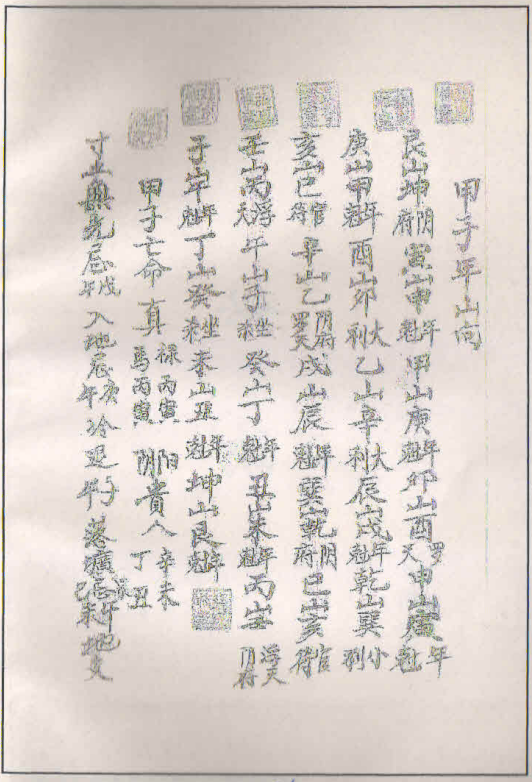 甲子年山向
艮山坤阴府寅山申年魁甲山庚年魁卯山酉罗天申山寅年魁
庚山甲年魁酉山卯大利乙山辛大利辰山戌年魁乾山巽小利
亥山巳官符辛山乙阴府罗天戌山辰年魁巽山乾阴府巳山亥官符
壬山丙浮天午山子坐煞癸山丁年魁丑山未年魁丙山壬浮天阴府
子山午年魁丁山癸坐煞未山丑年魁坤山艮年魁
甲子亡命真禄丙寅马丙寅阳阴贵人辛未丁丑
寸土無光忌戊年入地忌庚年冷退